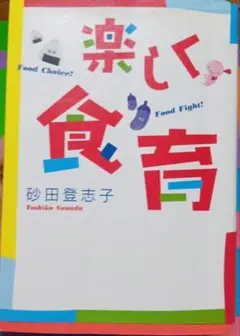 楽しく
Food Choice!
Food Fight!
食育
砂田登志子
Toshiko Sunada